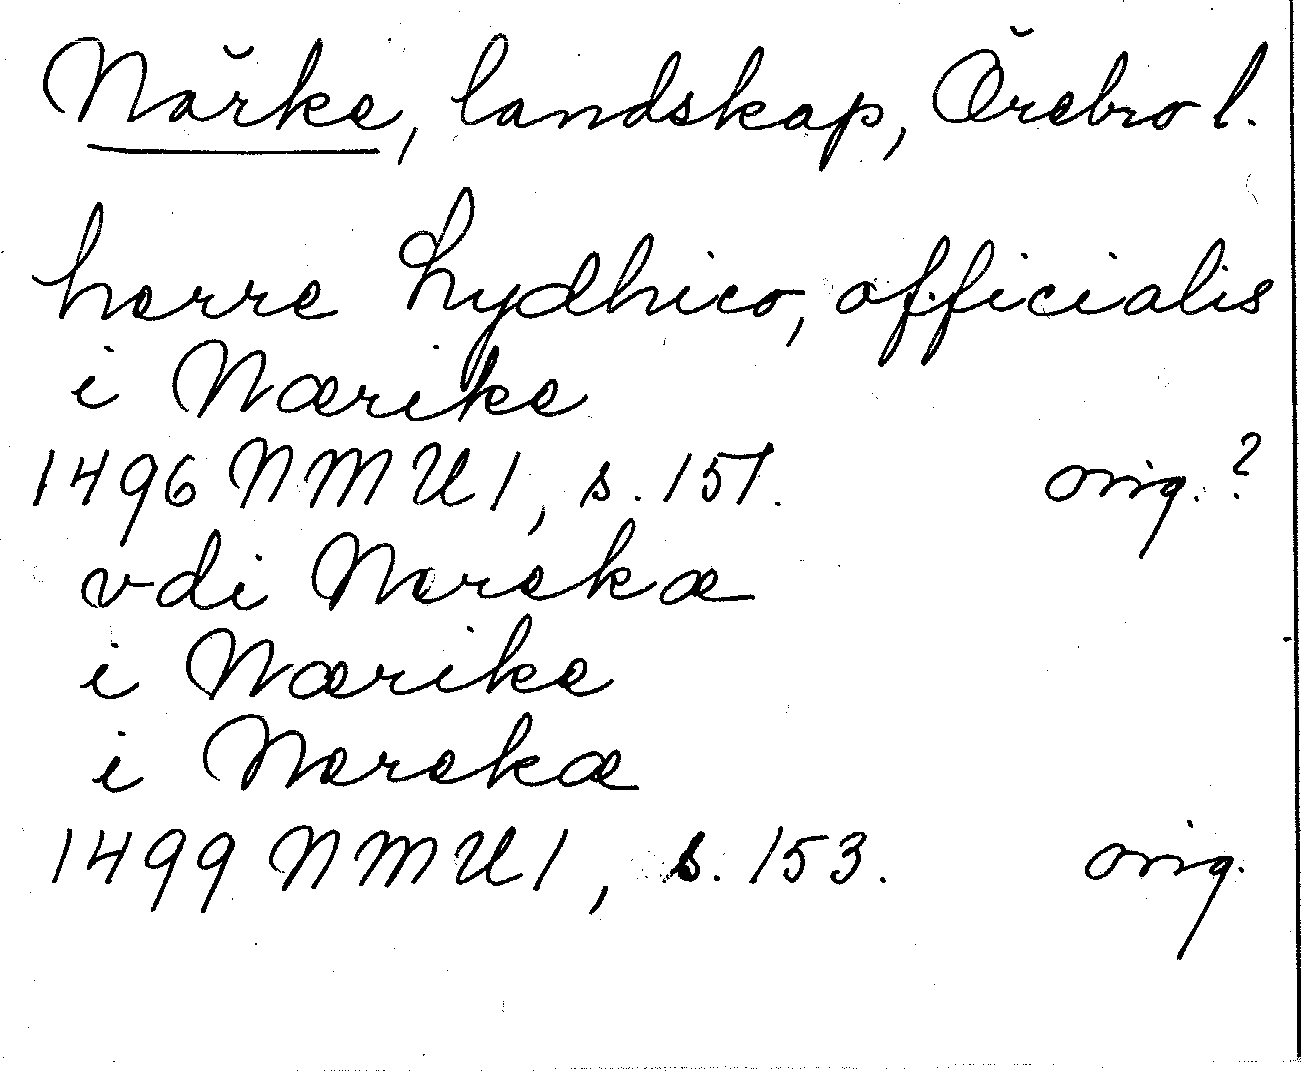 Närke, landskap, Örebro l.
herre Lydhico, officialis
i Nærike
1496 NMU1, s. 151. orig.?
vdi Nerekæ
i Nærike
i Nerekæ
1499 NMU1, s. 153. orig.